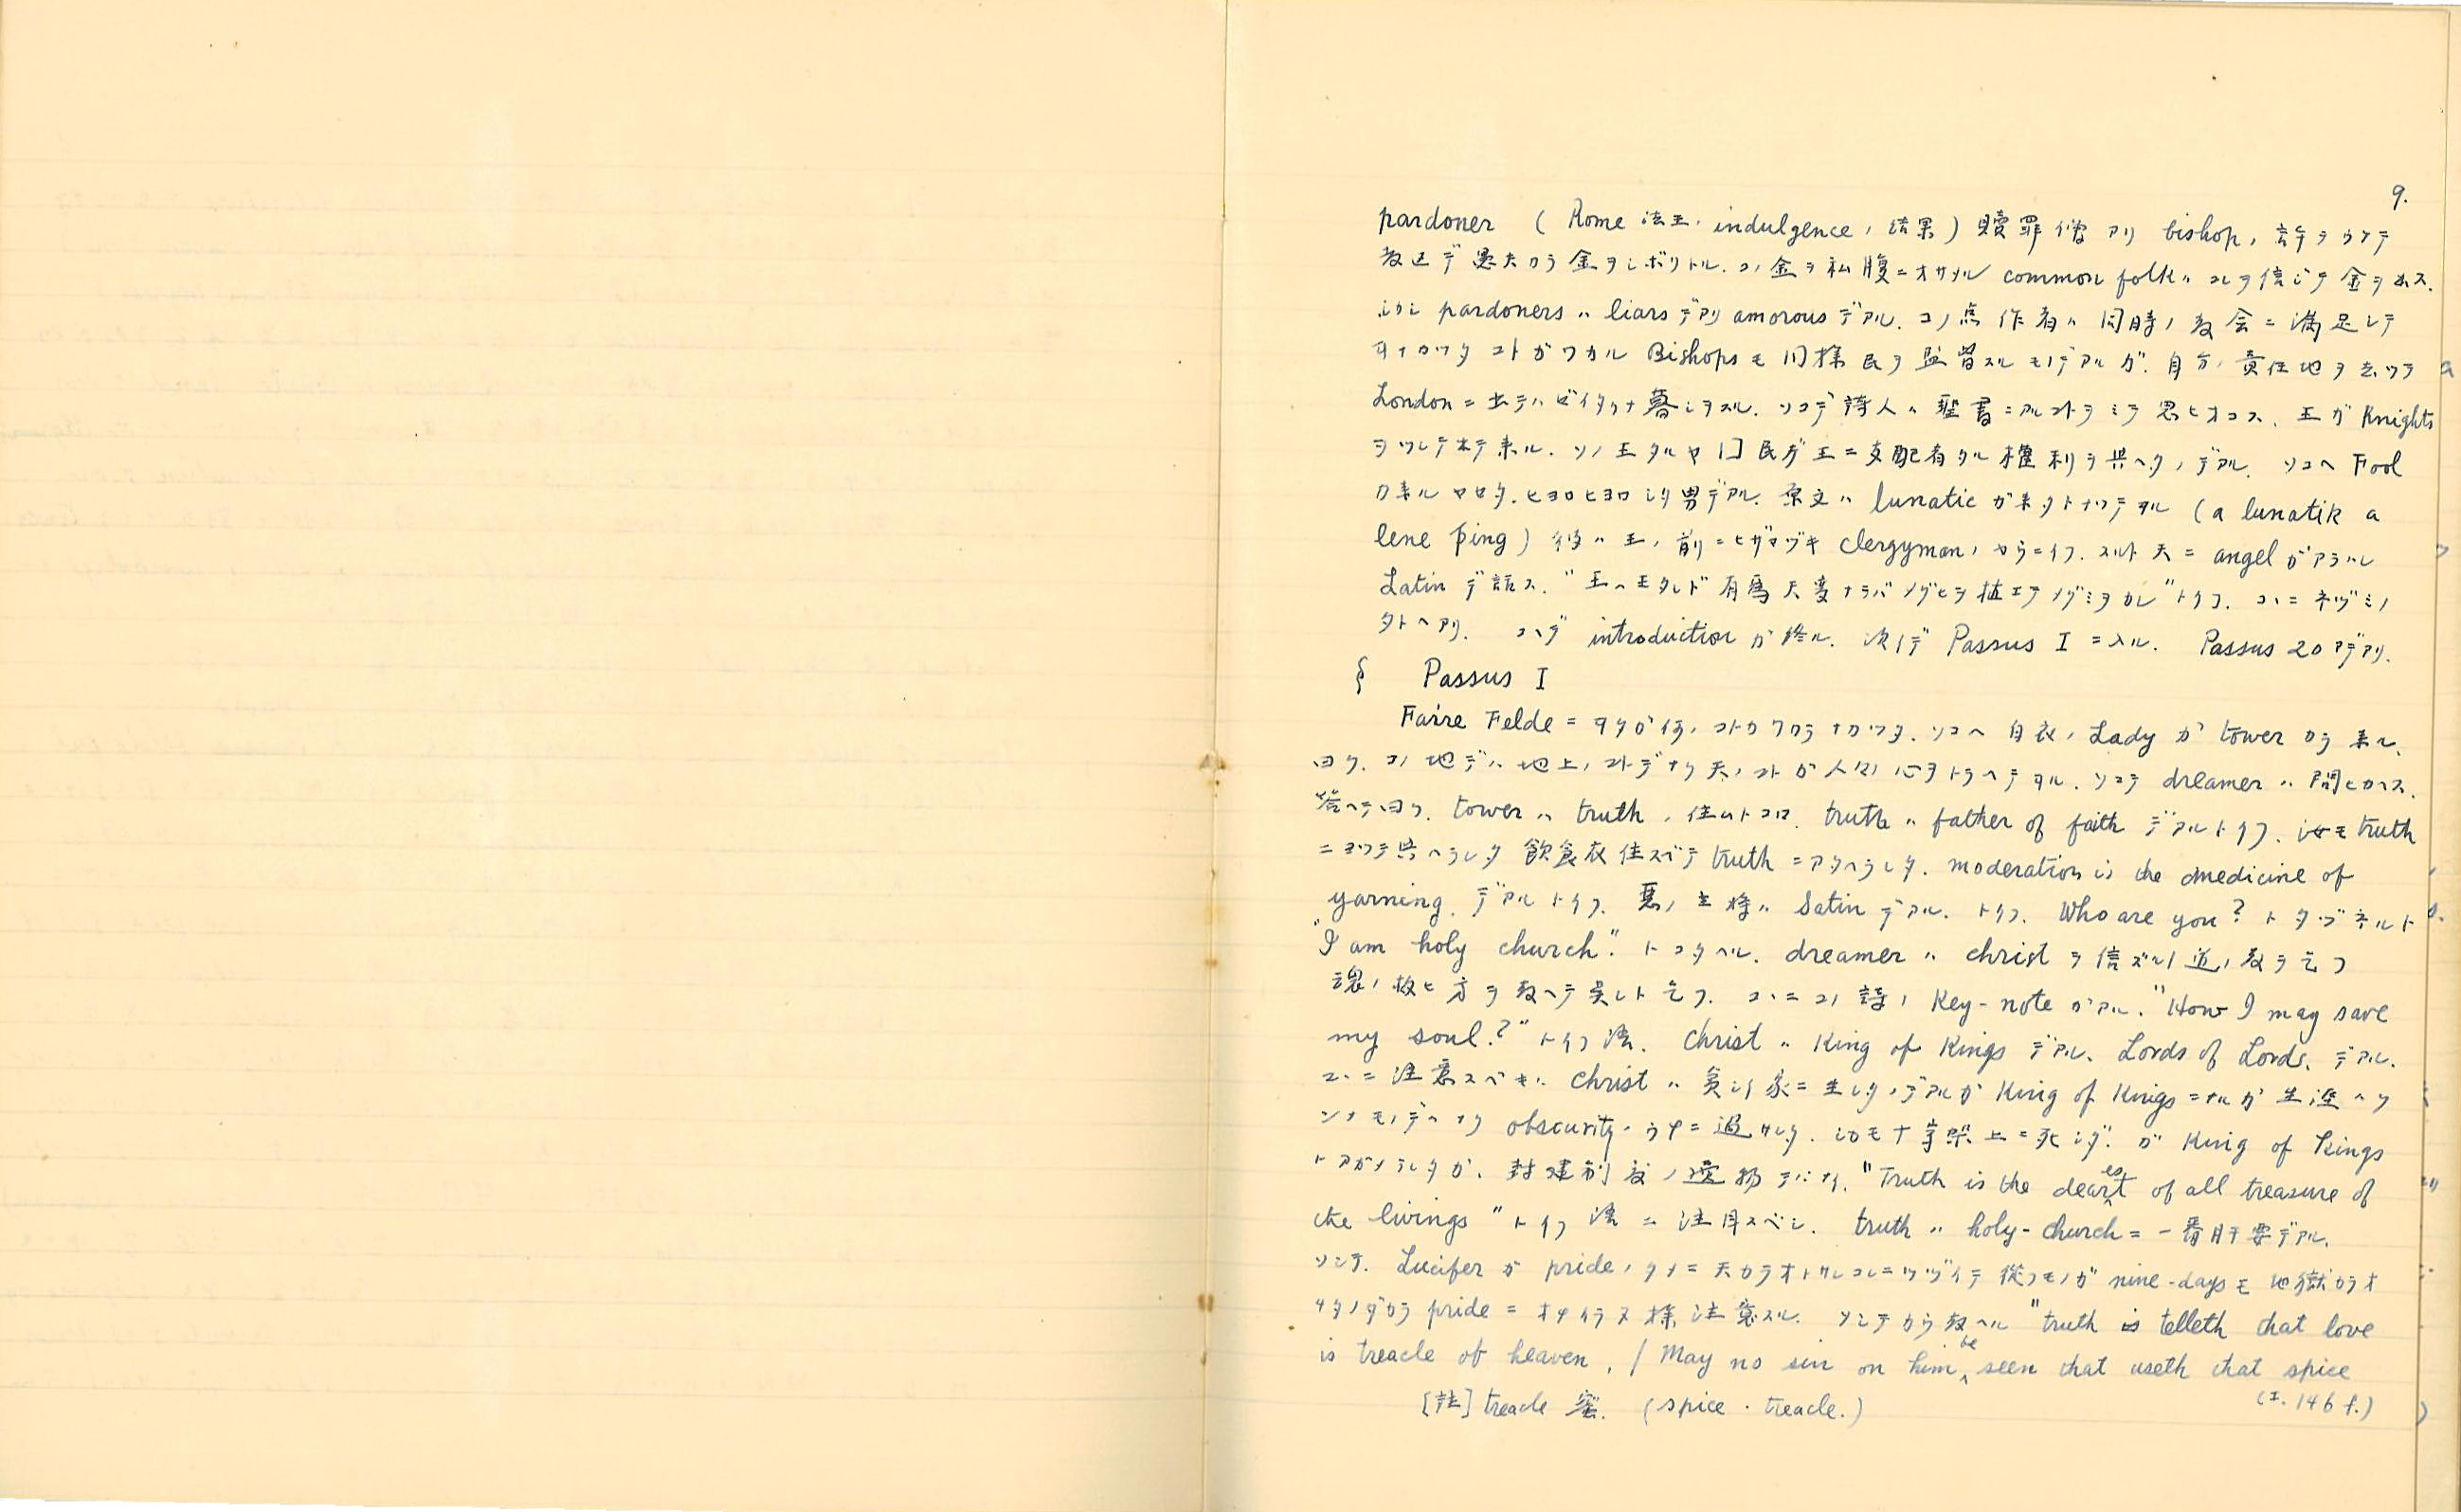 9.
pardoner ( Rome 法王ノ indulgence ノ結果) 贖罪僧アリ bishop ノ許ヲウケテ
教区デ悪夫カラ金ヲシボリトル. コノ金ヲ私腹ニオサメル common folk ハコレヲ信ジテ金ヲ出ス.
シカシ pardoners ハ liars デアリ amorous デアル. コノ点作者ハ同時ノ教会ニ満足シテ
ヰナカツタコトガワカル Bishops モ同様民ヲ監督スルモノデアルガ. 自分ノ責任地ヲ去ツテ
London ニ出テハゼイタクナ暮シヲスル. ソコデ詩人ハ聖書ニアルコトヲミテ思ヒオコス. 王ガ Knights
ヲツレテ出テ来ル. ソノ王タルヤ国民ガ王ニ支配者タル権利ヲ与ヘタノデアル. ソコヘ Fool
ガ来ルヤセタ. ヒヨロヒヨロシタ男デアル. 原文ハ lunatic ガ来タトナツテヰル (a lunatik a
lene þing) 彼ハ王ノ前ニヒザマヅキ clergyman ノヤウニイフ. スルト天ニ angel ガアラハレ
Latin デ話ス. "王ヘモタレド有為天変ナラバメグヒヲ植エテメグミヲカレ"トイフ. コヽニネヅミノ
タトヘアリ. コヽデ introduction ガ終ル. 次イデ Passus I ニ入ル. Passus 20 アデアリ.
§ Passus I
Faire Felde = ヰタガ何ノコトカワカラナカツタ. ソコヘ白衣ノ Lady ガ tower カラ来ル.
曰ク. コノ地デハ地上ノコトデナク天ノコトガ人々ノ心ヲトラヘテヰル. ソコデ dreamer ハ問ヒカヘス.
答ヘテ曰ク. tower ハ truth ノ住ムトコロ. truth ハ father of faith デアルトイフ. 汝モ truth
ニヨツテ与ヘラレタ飲食衣住スベテ truth ニアタヘラレタ. moderation is the medicine of
yarning. デアルトイフ. 悪ノ主将ハ Satin デアル. トイフ. Who are you? トタヅネルト
"I am holy church." トコタヘル. dreamer ハ christ ヲ信ズルノ道ノ教ヲ乞フ
魂ノ救ヒ方ヲ教ヘテ呉レト乞フ. コヽニコノ詩ノ Key-note ガアル. "How I may save
my soul?" トイフ語. Christ ハ King of Kings デアル. Lords of Lords. デアル.
コヽニ注意スベキハ Christ ハ貧シイ家ニ生レタノデアルガ King of Kings ニナルガ生涯ヘソ
ンナモノデハナク obscurity ノウチニ過サレタ. シカモ十字架上ニ死シダ. ガ King of Kings
トアガメラレタガ. 封建制度ノ遺物デハナイ. "Truth is the dearest of all treasure of
the livings" トイフ語ニ注目スベシ. truth ハ holy-church = 一番肝要デアル.
ソシテ. Lucifer ガ pride ノタメニ天カラオトサレコレニツヅイテ従フモノガ nine-days モ地獄カラオ
チタノダカラ pride ニオチイラヌ様注意スル. ソシテカラ教ヘル "truth telleth that love
is treacle of heaven, / May no sin on him be seen that useth that spice
(I. 146 f.)
[註] treacle 蜜. (spice · treacle.)